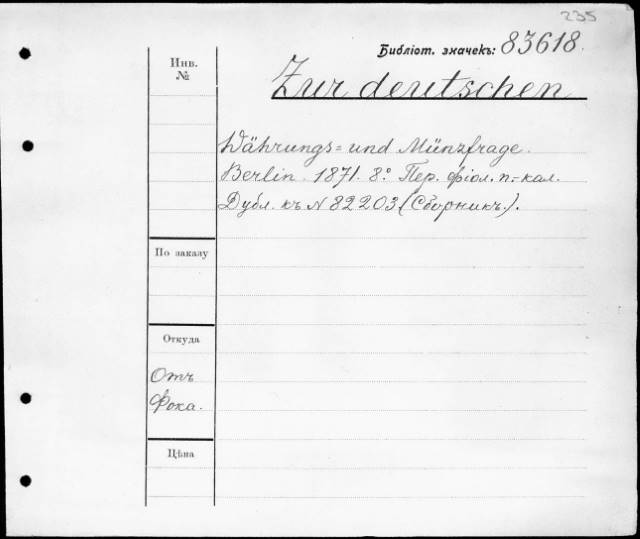 235
Библіот. значекъ: 83618.
Инв.
№
Zur deutschen
Währungs= und Münzfrage.
Berlin. 1871. 8°. Пер. фіол. п.-кал.
Дубл. къ N 82203 (Сборникъ.).
По заказу
Откуда
Отъ
Фока.
Цѣна